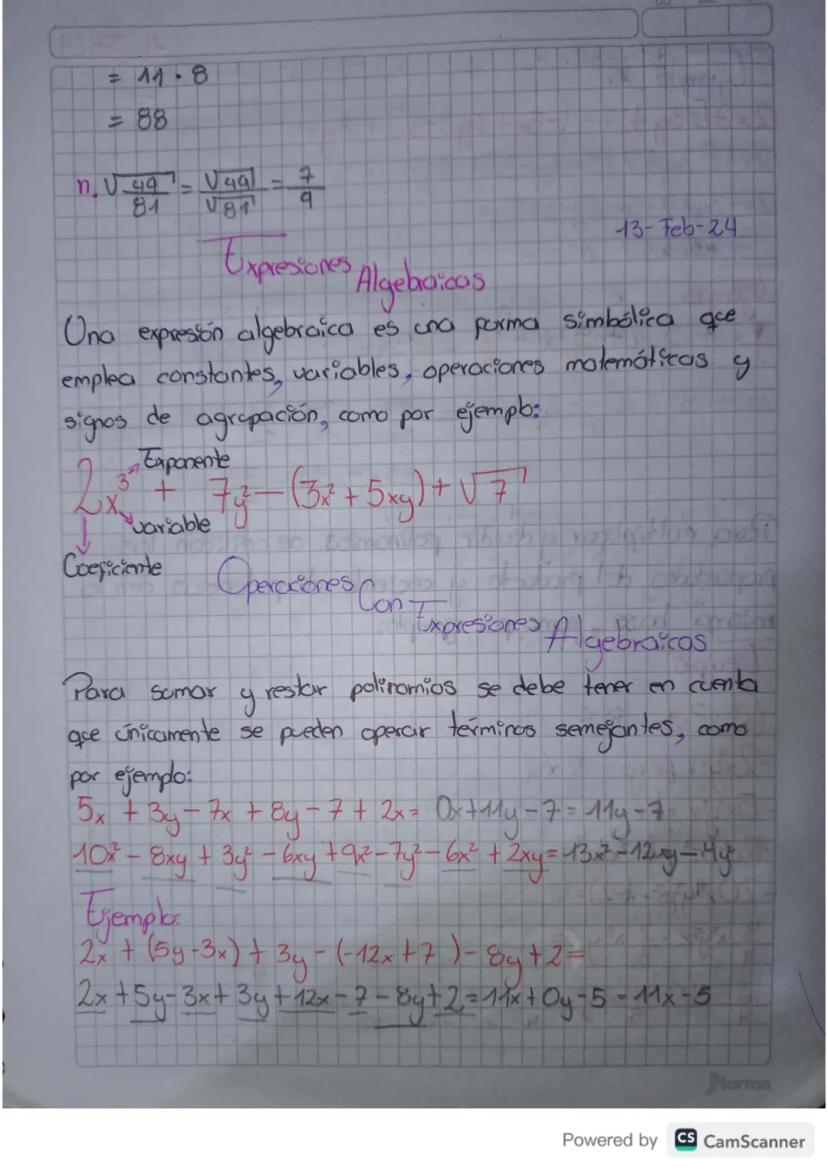 = 11 · 8
= 88
n. √49/81 = √49/√81 = 7/9
13-Feb-24
Expresiones Algebraicas
Una expresión algebraica es una forma simbólica que
emplea constantes, variables, operaciones matemáticas y
signos de agrupación, como por ejemplo:
Exponente
2x³ + 7y² - (3x² + 5xy) + √7
variable
Coeficiente
Operaciones Con Expresiones Algebraicas
Para sumar y restar polinomios se debe tener en cuenta
que únicamente se pueden operar términos semejantes, como
por ejemplo:
5x + 3y - 7x + 8y - 7 + 2x = 0x + 11y - 7 = 11y - 7
10x² - 8xy + 3y² - 6xy + 9x² - 7y² - 6x² + 2xy = 13x² - 12xy - 4y²
Ejemplo:
2x + (5y - 3x) + 3y - (-12x + 7) - 8y + 2 =
2x + 5y - 3x + 3y + 12x - 7 - 8y + 2 = 11x + 0y - 5 = 11x - 5
Norma
Powered by CS CamScanner